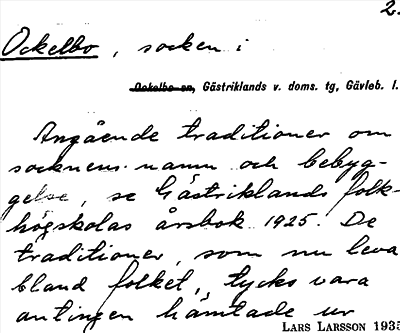 2.
Ockelbo, socken i
Ockelbo sn, Gästriklands v. doms. tg, Gävleb. l.
Angående traditioner om
socknens namn och bebyg-
gelse, se Gästriklands folk-
högskolas årsbok 1925. De
traditioner, som nu leva
bland folket, tycks vara
antingen hämtade ur
LARS LARSSON 1935